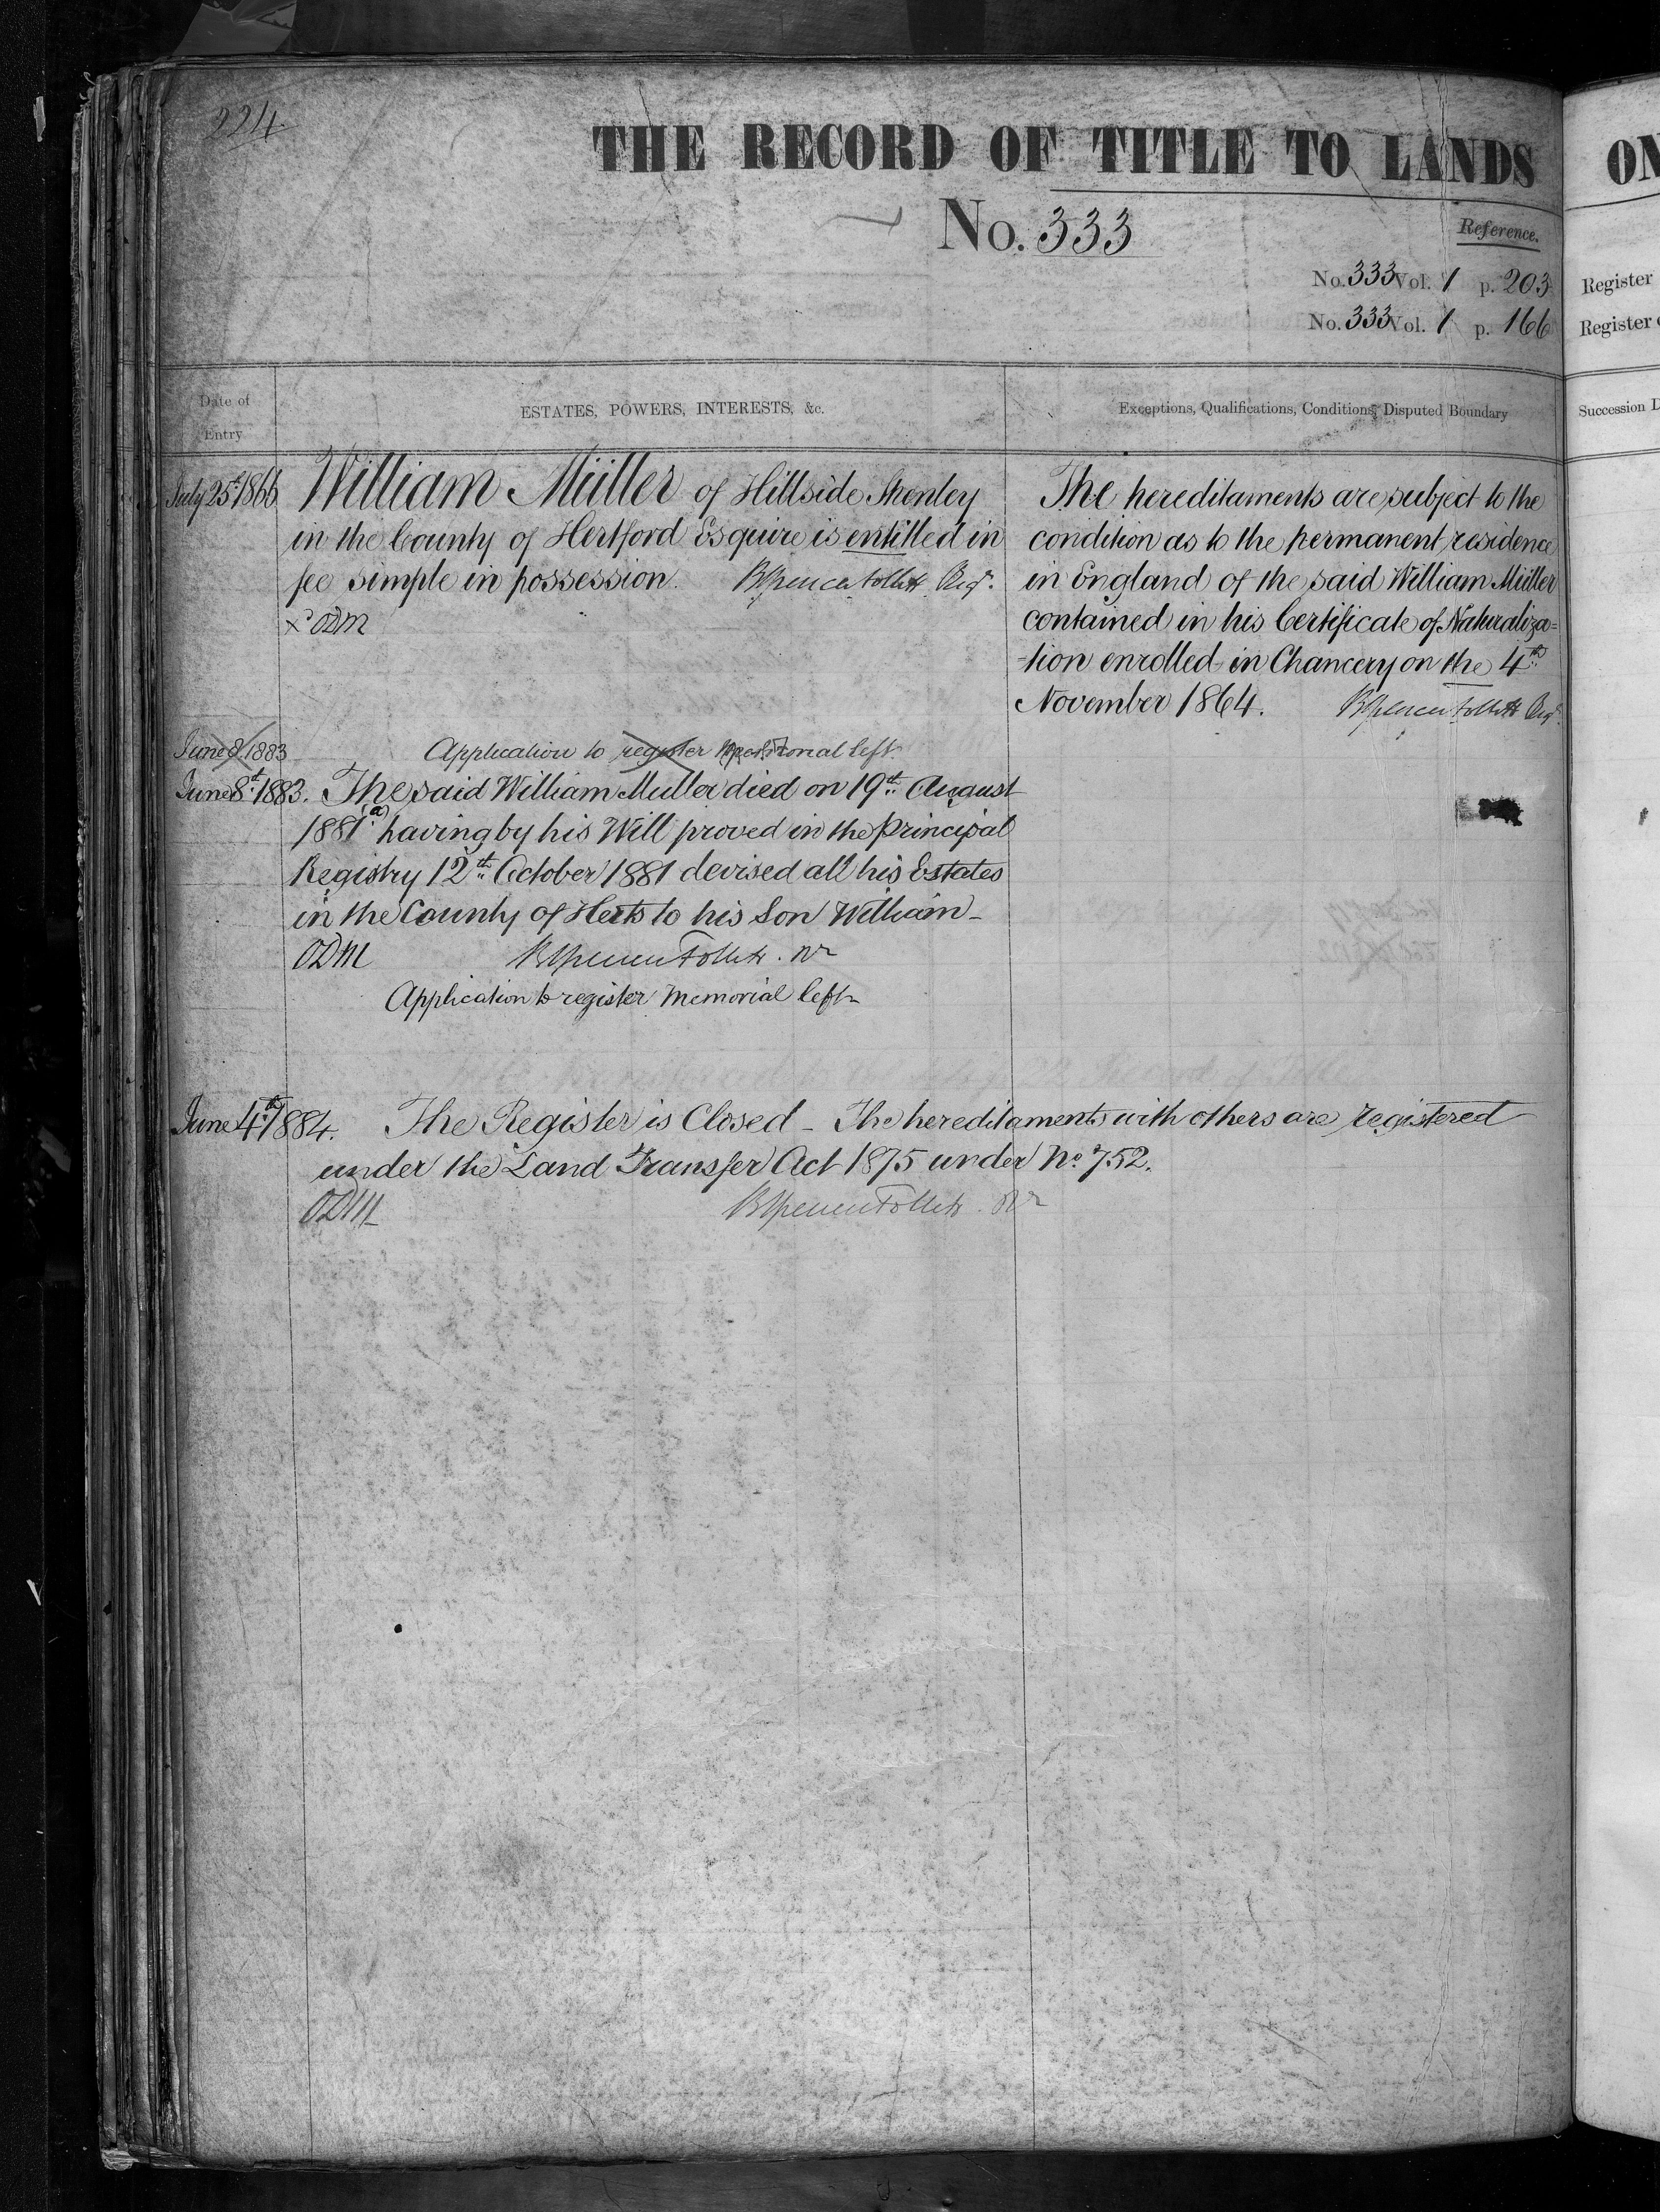 224
THE RECORD OF TITLE TO LANDS
No. 333
Reference.
No. 333 Vol. 1 p. 203
No. 333 Vol. 1 p. 166
Date of Entry
ESTATES, POWERS, INTERESTS, &c.
Exceptions, Qualifications, Conditions, Disputed Boundary
July 25th 1866
William Müller of Hillside Shenley
in the County of Hertford Esquire is entitled in
fee simple in possession. BSpencer Follett Regr.
x ODM
The hereditaments are subject to the
condition as to the permanent residence
in England of the said William Müller
contained in his Certificate of Naturaliza=
-tion enrolled in Chancery on the 4th
November 1864. BSpencer Follett Regr.
June 8 1883 Application to register left
June 8th 1883. The said William Muller died on 19th August
1881 (a) having by his Will proved in the Principal
Registry 12th October 1881 devised all his Estates
in the County of Herts to his Son William_
ODM BSpencer Follett. Rr
Application to register Memorial left
June 4th 1884. The Register is Closed _ The hereditaments with others are registered
under the Land Transfer Act 1875 under No. 752.
ODM BSpencer Follett. Rr
ON
Register
Register
Succession D